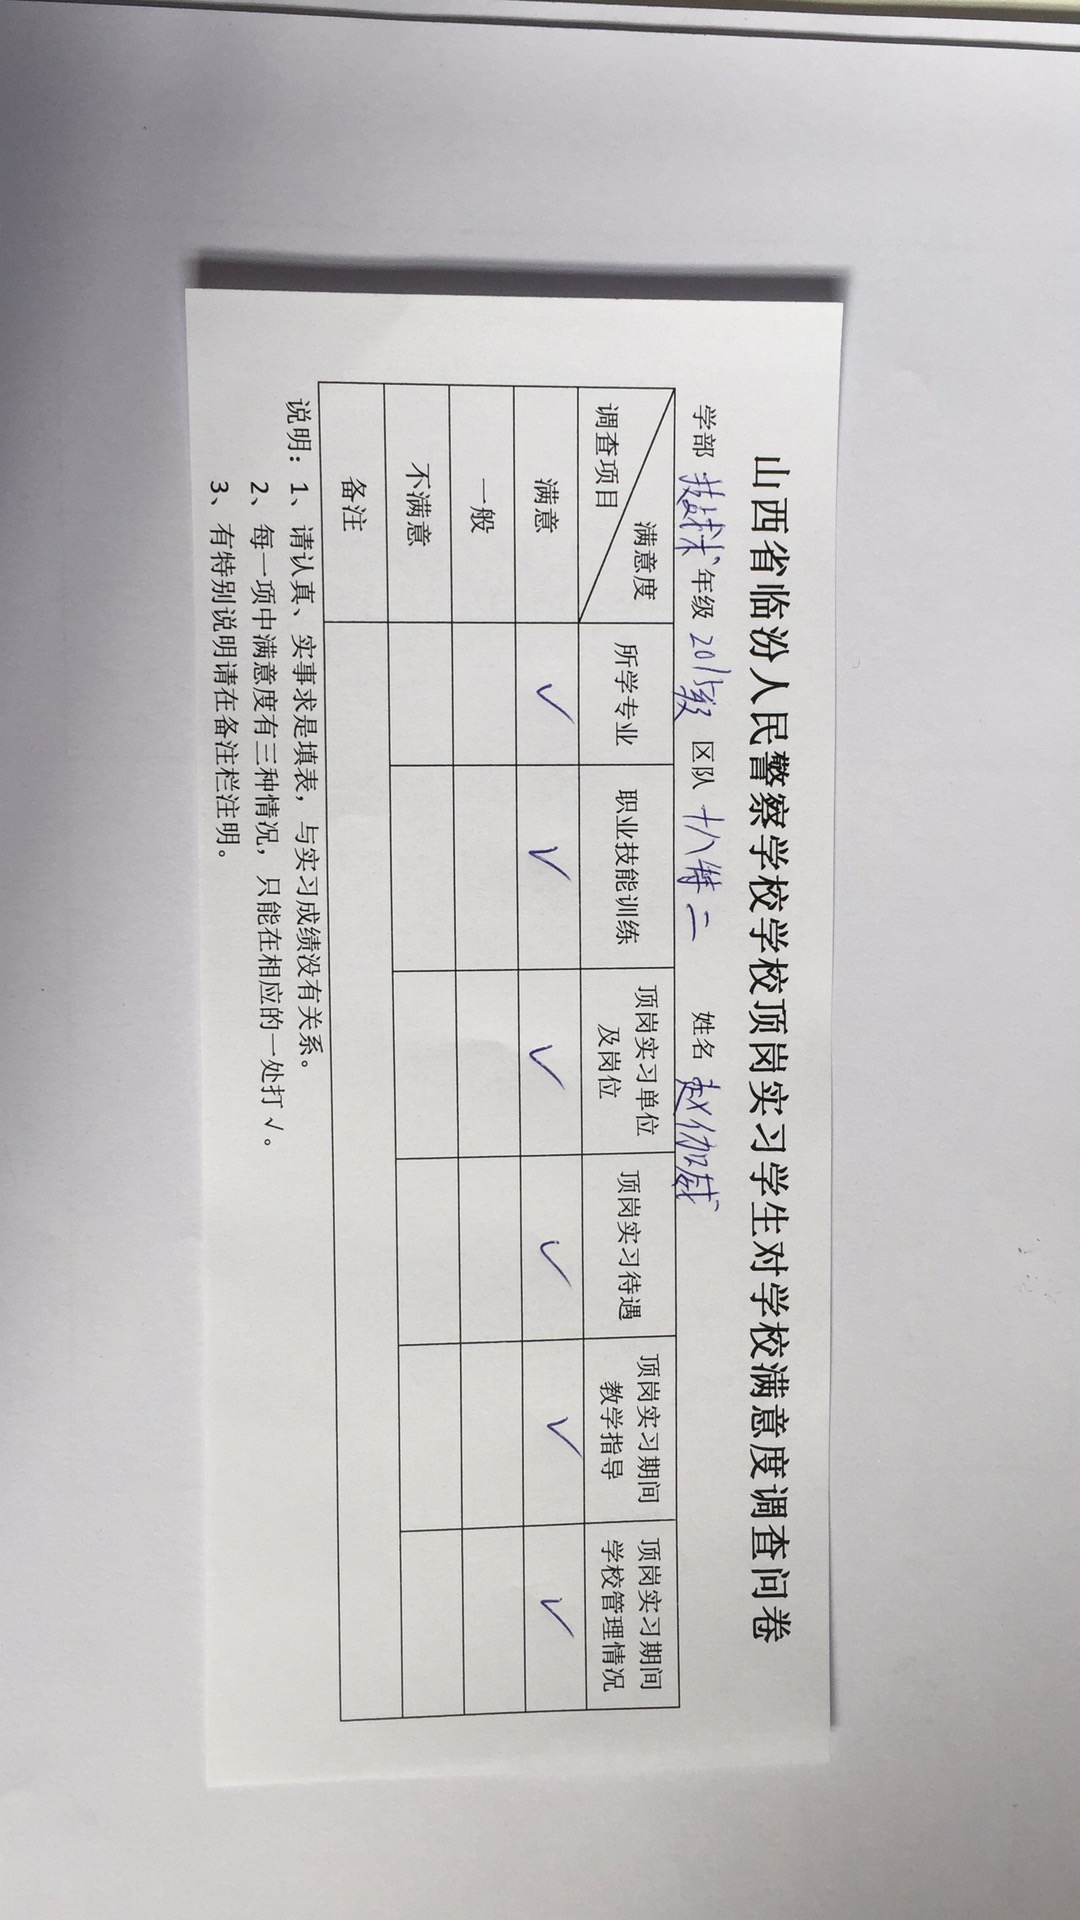 山西省临汾人民警察学校学校顶岗实习学生对学校满意度调查问卷
学部 技术 年级 2015级 区队 十八特二 姓名 赵伽威
满意度
调查项目
所学专业 职业技能训练 顶岗实习单位及岗位 顶岗实习待遇 顶岗实习期间教学指导 顶岗实习期间学校管理情况
满意 ✓ ✓ ✓ ✓ ✓ ✓
一般
不满意
备注
说明：1、请认真、实事求是填表，与实习成绩没有关系。
2、每一项中满意度有三种情况，只能在相应的一处打√。
3、有特别说明请在备注栏注明。